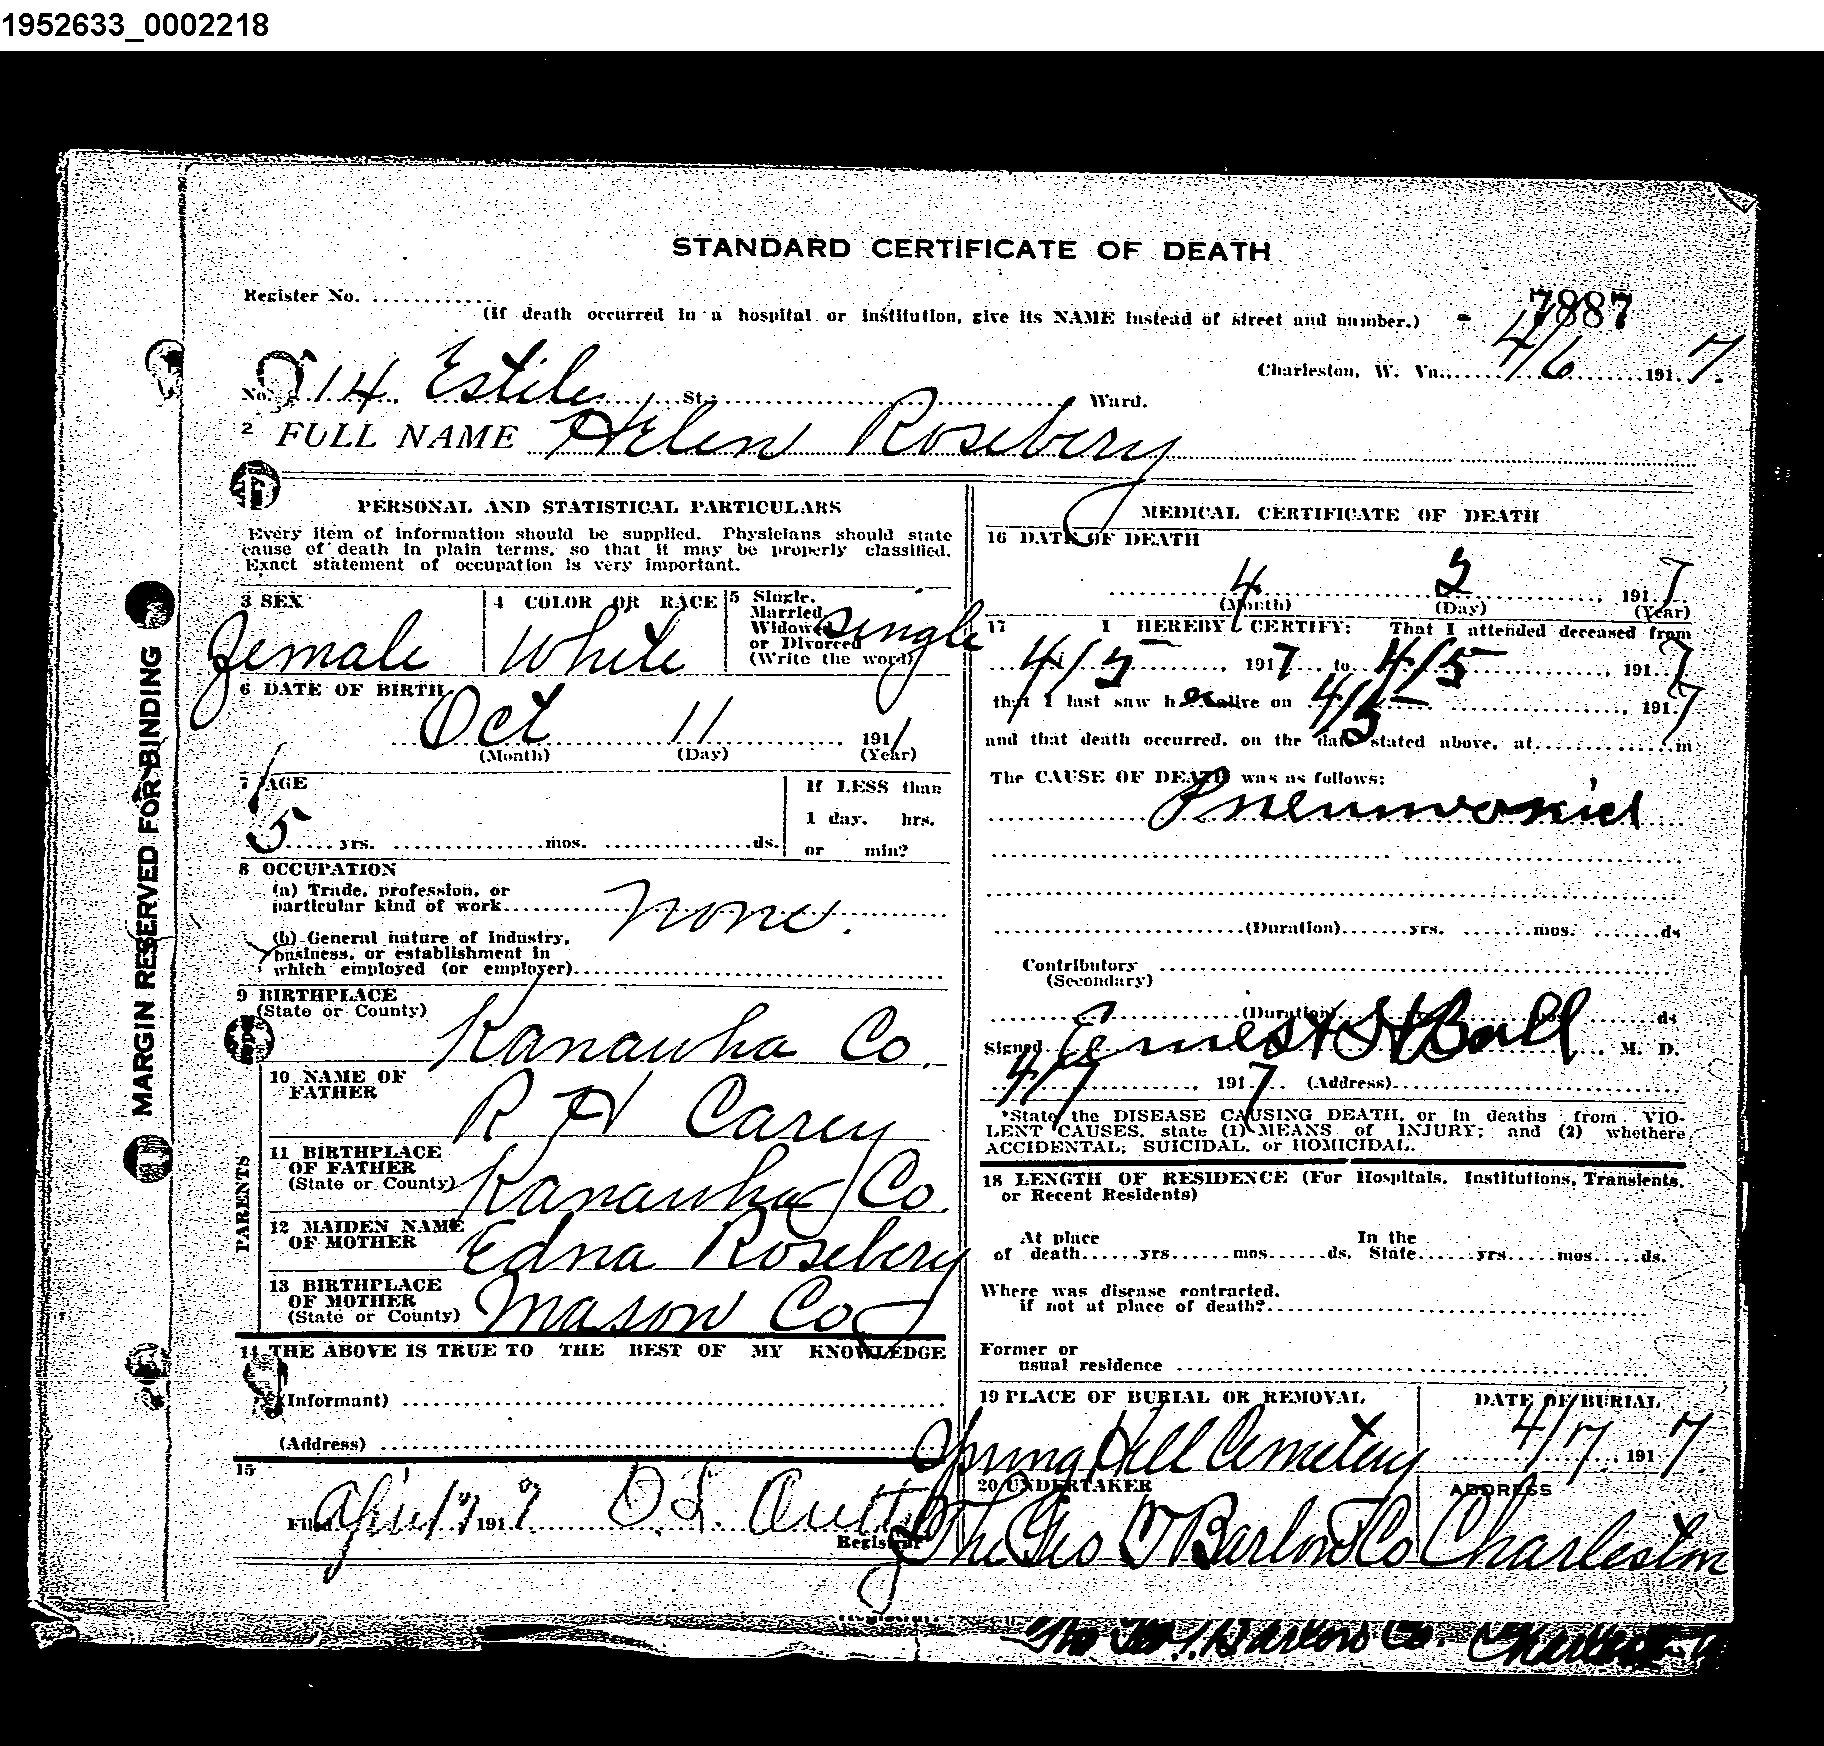 1952633_0002218
STANDARD CERTIFICATE OF DEATH
Register No. ............
(If death occurred in a hospital or institution, give its NAME instead of street and number.) - 7887
Charleston, W. Va. 4/6 1917.
No. 14 Estile St. Ward.
2 FULL NAME Helen Rosebery
PERSONAL AND STATISTICAL PARTICULARS
Every item of information should be supplied. Physicians should state
cause of death in plain terms, so that it may be properly classified.
Exact statement of occupation is very important.
3 SEX
Female
4 COLOR OR RACE
White
5 Single,
Married,
Widowed
or Divorced
(Write the word)
Single
6 DATE OF BIRTH
Oct 11 1911
(Month) (Day) (Year)
7 AGE
5 yrs. mos. ds.
If LESS than
1 day, hrs.
or min?
8 OCCUPATION
(a) Trade, profession, or
particular kind of work None.
(b) General nature of industry,
business, or establishment in
which employed (or employer)
9 BIRTHPLACE
(State or County)
Kanawha Co.
PARENTS
10 NAME OF
FATHER
R H Carey
11 BIRTHPLACE
OF FATHER
(State or County)
Kanawha Co.
12 MAIDEN NAME
OF MOTHER
Edna Rosebery
13 BIRTHPLACE
OF MOTHER
(State or County)
Mason Co
14 THE ABOVE IS TRUE TO THE BEST OF MY KNOWLEDGE
(Informant)
(Address)
15
Filed April 7 1917 O. L.
Registrar
MEDICAL CERTIFICATE OF DEATH
16 DATE OF DEATH
4 1917
(Month) (Day) (Year)
17 I HEREBY CERTIFY: That I attended deceased from
4/5 1917 to 4/5 1917
that I last saw her alive on 4/5 1917
and that death occurred, on the date stated above, at m
The CAUSE OF DEATH was as follows:
Pneumonia
(Duration) yrs. mos. ds
Contributory
(Secondary)
(Duration) ds
Signed Ernest H Ball M. D.
4/7 1917 (Address)
*State the DISEASE CAUSING DEATH, or in deaths from VIO-
LENT CAUSES, state (1) MEANS of INJURY; and (2) whethere
ACCIDENTAL; SUICIDAL, or HOMICIDAL.
18 LENGTH OF RESIDENCE (For Hospitals, Institutions, Transients,
or Recent Residents)
At place In the
of death yrs. mos. ds. State yrs. mos. ds.
Where was disease contracted,
if not at place of death?
Former or
usual residence
19 PLACE OF BURIAL OR REMOVAL
Spring Hill Cemetery
DATE OF BURIAL
4/7 1917
20 UNDERTAKER
The Geo T Barlow Co
ADDRESS
Charleston
MARGIN RESERVED FOR BINDING